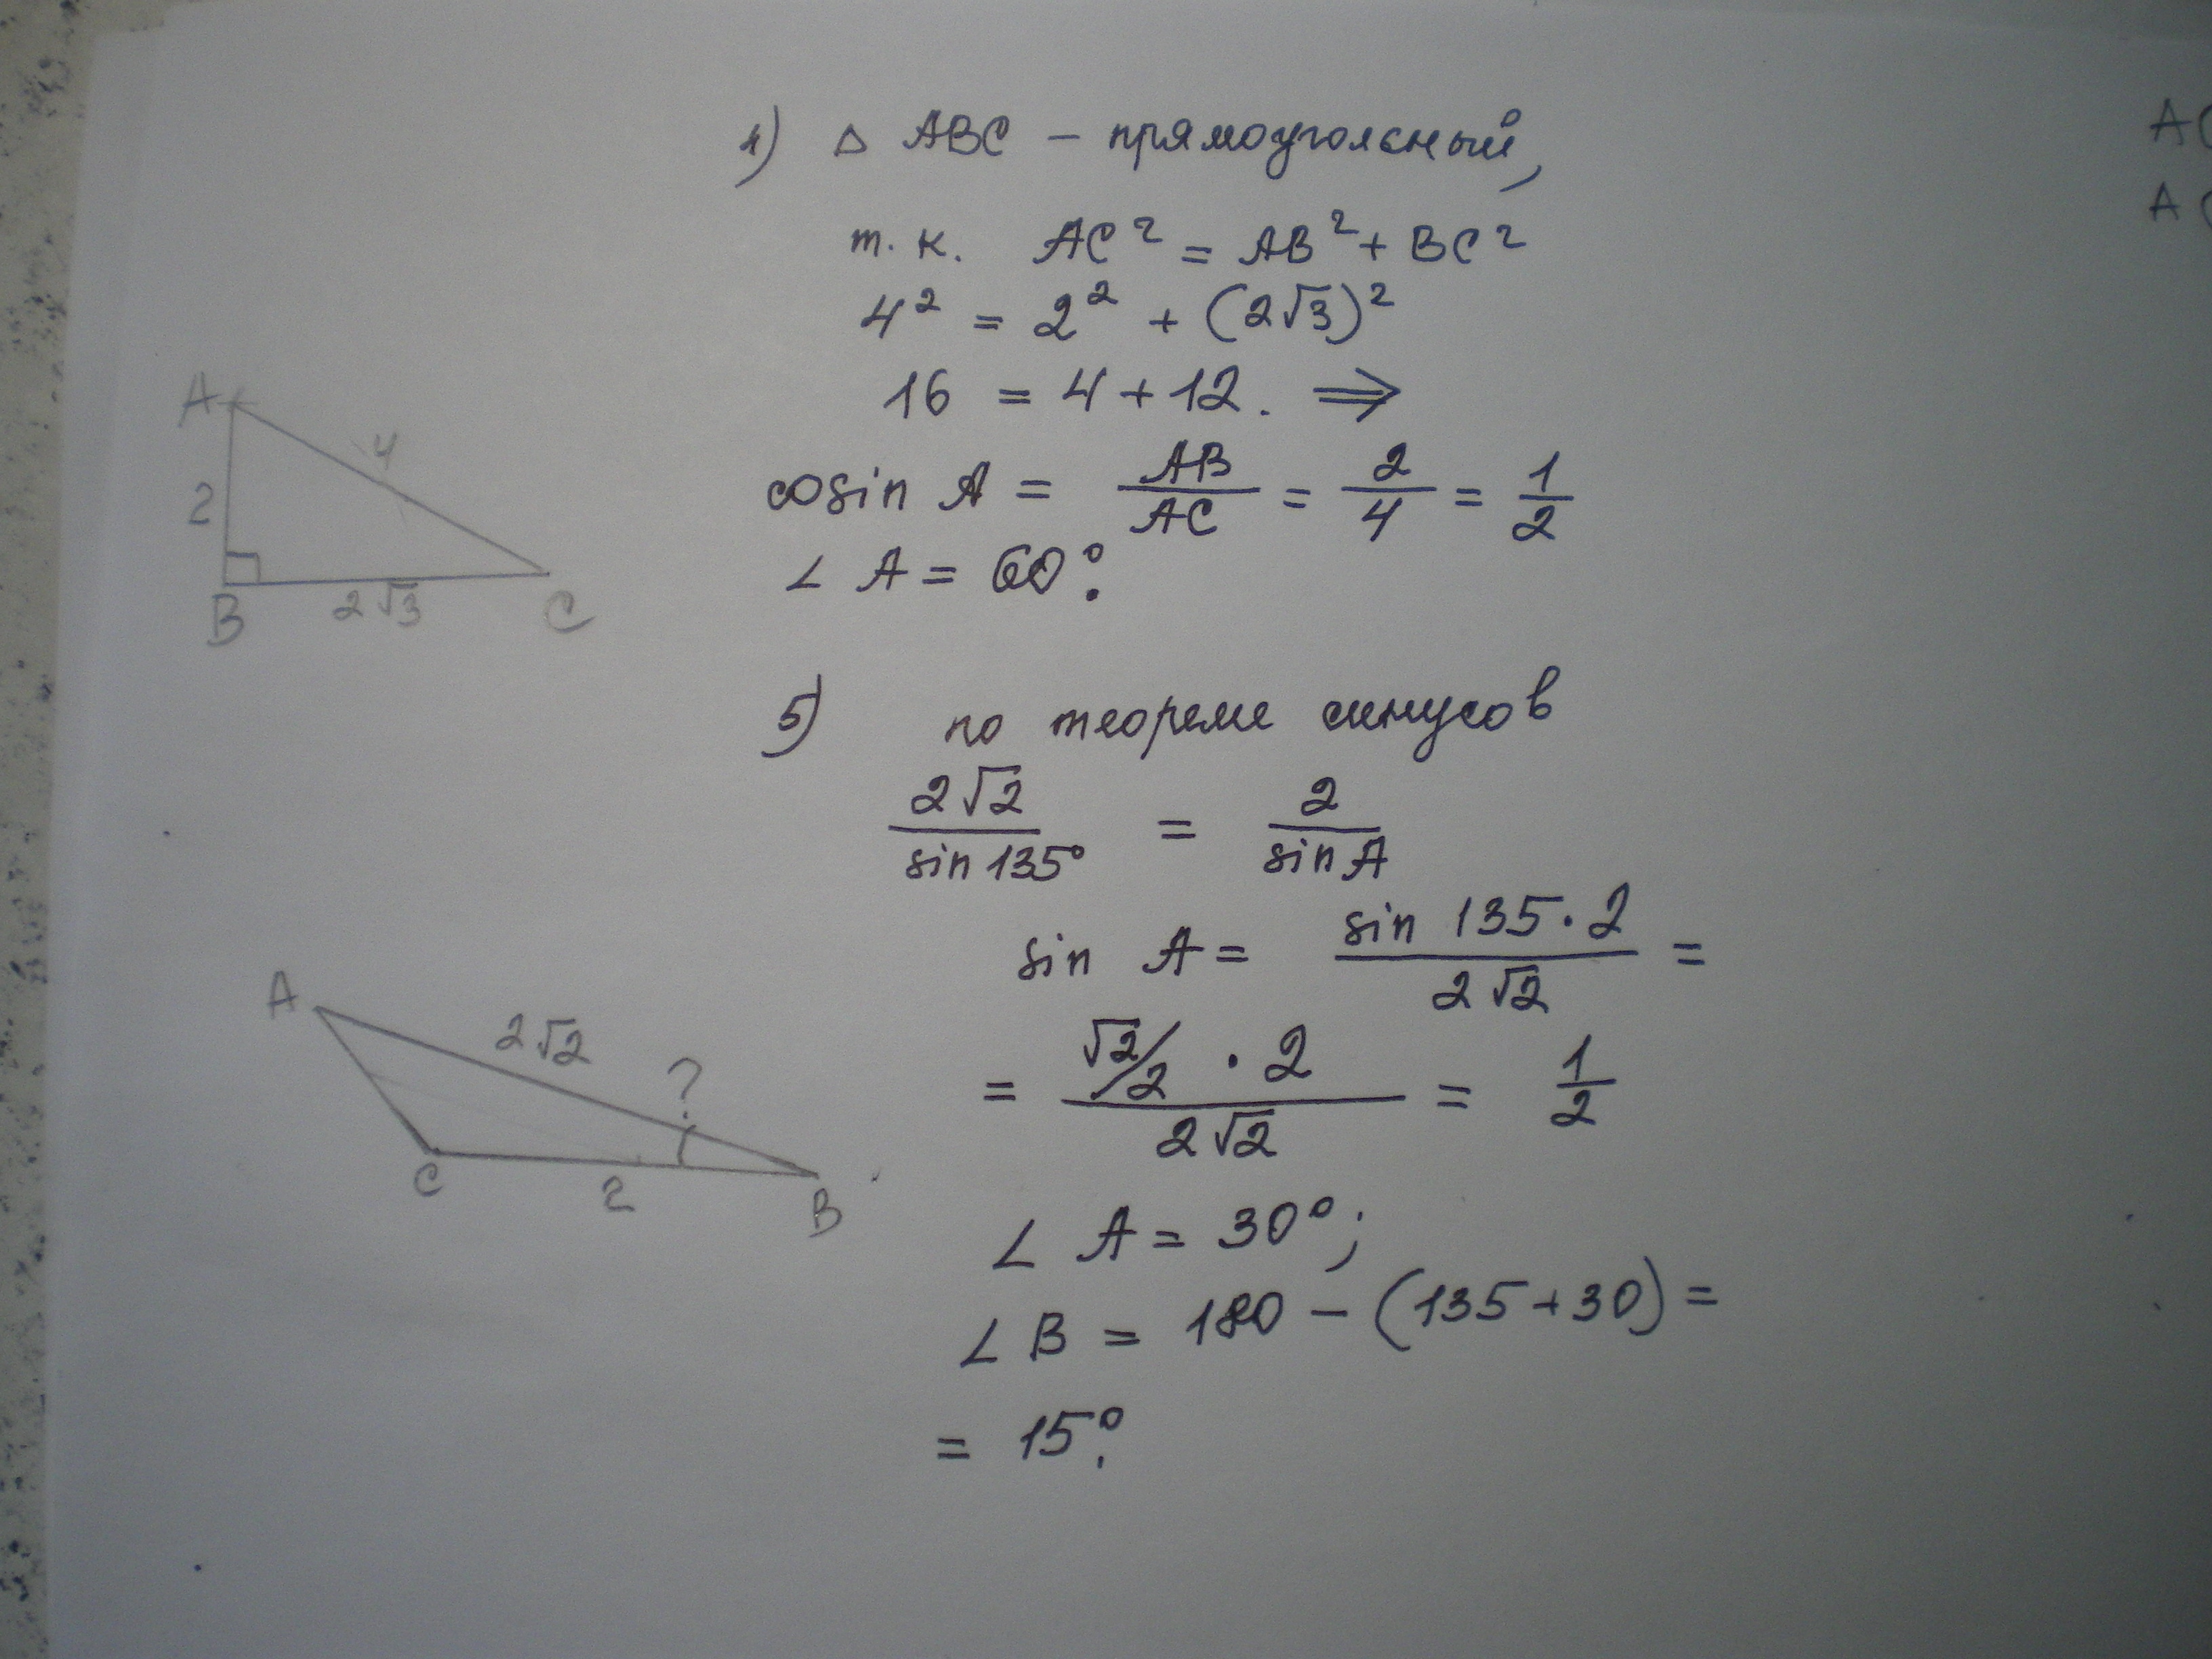 1) △ ABC – прямоугольный,
т. к. AC² = AB² + BC²
4² = 2² + (2√3)²
16 = 4 + 12. ⇒
cosin A = AB/AC = 2/4 = 1/2
∠ A = 60°.
A
4
2
B
2√3
C
5) по теореме синусов
2√2/sin 135° = 2/sin A
sin A = sin 135 · 2/2√2 =
= √2/2 · 2/2√2 = 1/2
∠ A = 30°;
∠ B = 180 – (135 + 30) =
= 15°.
A
2√2
?
C
2
B